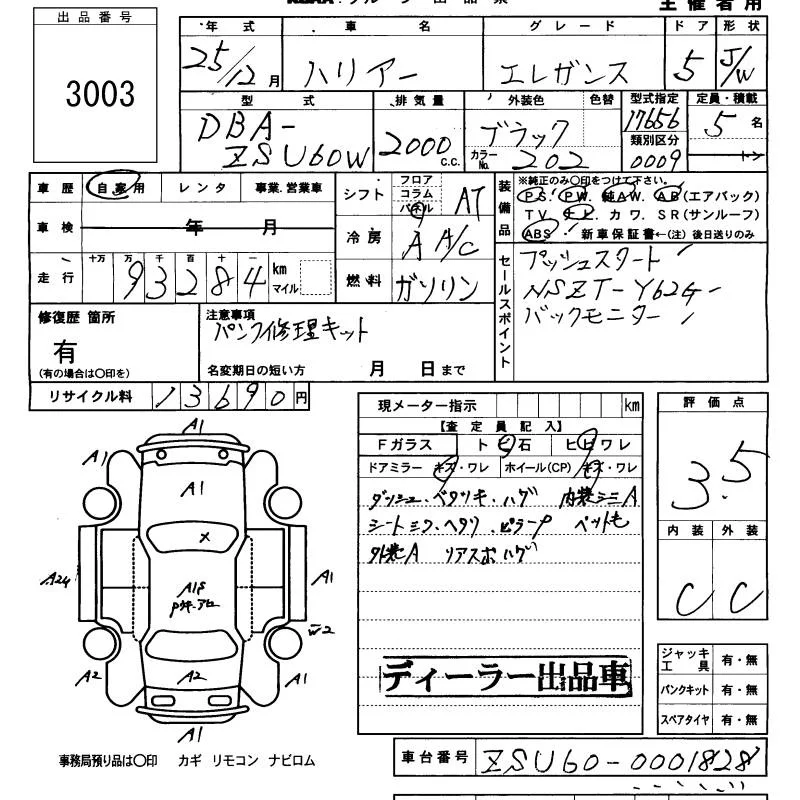 主催者用
出品番号
3003
年式 車名 グレード ドア 形状
25/12月 ハリアー エレガンス 5 5/W
型式 排気量 外装色 色替 型式指定 定員・積載
DBA-ZSU60W 2000c.c. ブラック 17656 5名
カラーNo. 202 類別区分 0009 トン
車歴 自家用 レンタ 事業.営業車
シフト フロア コラム パネル AT
装備品 ※純正のみ〇印をつけて下さい。
PS. PW. 純AW. AB(エアバック)
TV. ナビ. カワ. SR(サンルーフ)
ABS 新車保証書←(注)後日送りのみ
車検 年 月
冷房 A A/C
走行 十万 万 千 百 十 一
93284 km マイル
燃料 ガソリン
セールスポイント
プッシュスタート
NSZT-Y62G
バックモニター
修復歴 箇所
有
(有の場合は〇印を)
注意事項
パンク修理キット
名変期日の短い方 月 日まで
リサイクル料 13690円
現メーター指示 km
【査定員記入】
Fガラス トビ石 ヒビワレ
ドアミラー キズ・ワレ ホイール(CP) キズ・ワレ
ダッシュ・ベタツキ・ハゲ 内装シミA
シートミフ・ヘタリ・ピラーP ペット毛
外装A リアスポハゲ
ディーラー出品車
評価点
3.5
内装 外装
C C
ジャッキ工具 有・無
パンクキット 有・無
スペアタイヤ 有・無
A1
A1 A1
A1
X
A24 A1S A1
Pウキ・アセ
W2
A2 A2 A1
A1
事務局預り品は〇印 カギ リモコン ナビロム
車台番号 ZSU60-0001828